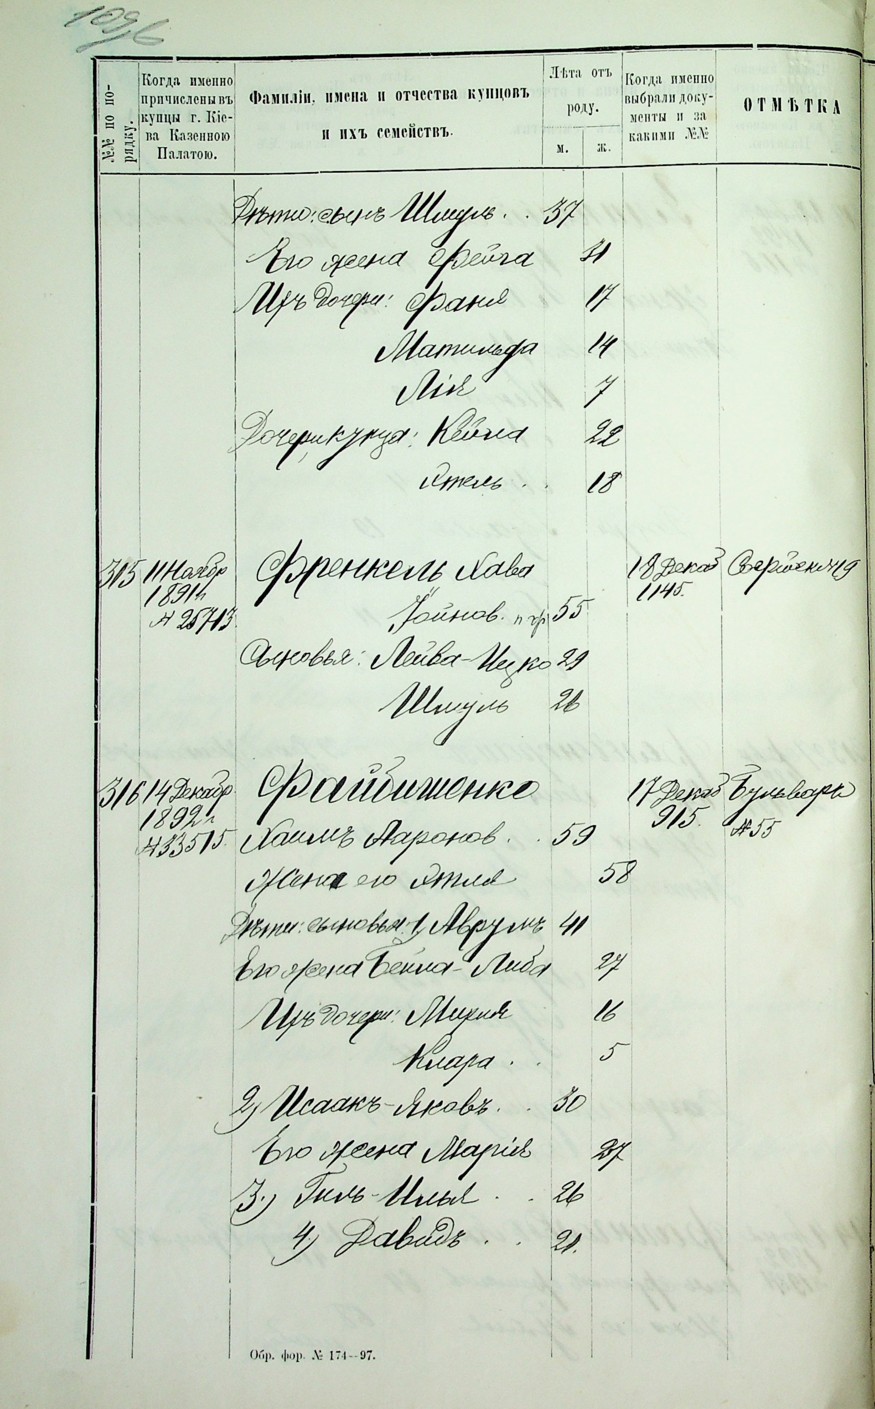 №№ по по-
рядку.
Когда именно
причислены въ
купцы г. Кіе-
ва Казенною
Палатою.
Фамиліи, имена и отчества купцовъ
и ихъ семействъ.
Лѣта отъ
роду.
м. ж.
Когда именно
выбрали доку-
менты и за
какими №№
ОТМѢТКА
Дѣти: сынъ Шмуль . . 37
Его жена Фейга 31
Ихъ дочери: Фаня 17
Матильда 14
Лія 7
Дочери купца: Кейла 22
Этель . . 18
315 11 Ноябр Френкель Хава 18 Декаб
1891 г. 1145.
№ 25713 Іойнов. 55
Сыновья: Лейва-Ицко 29
Шмуль 26
316 14 Декабр Файбишенко 17 Декаб Бульварн
1892 г. 915. № 55
№ 33515. Хаимъ Ааронов. . 59
Жена его Этля 58
Дѣти: сыновья: 1) Аврумъ 41
Его жена Бейла-Либа 27
Ихъ дочери: Мирия 16
Клара . . 5
2) Исаакъ-Яковъ. . 30
Его жена Марія 27
3.) Гиль-Илья . . 26
4) Давидъ . . 21.
Обр. фор. № 174—97.